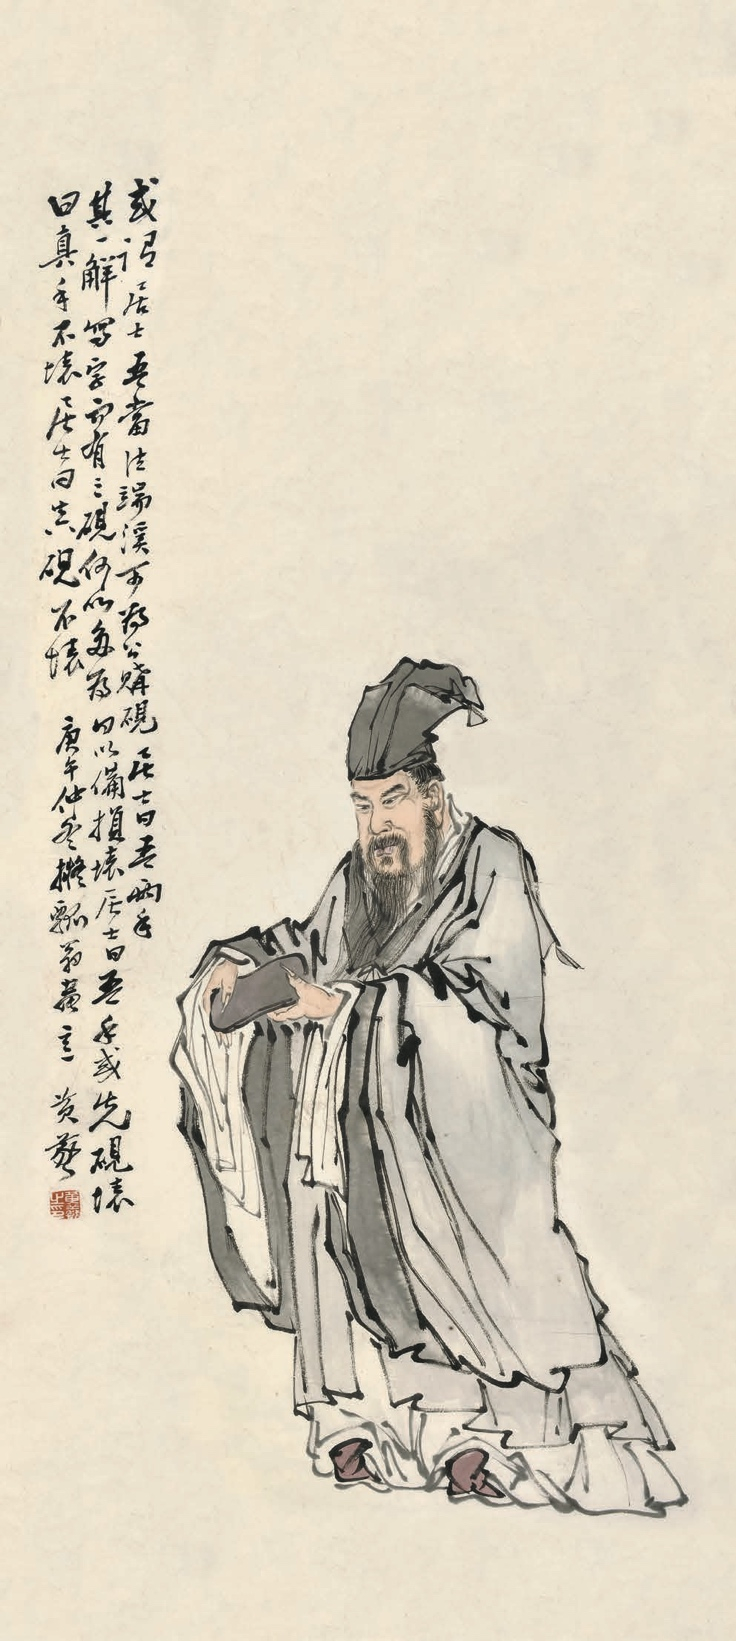 或謂居士吾當往端溪可為公購硯居士曰吾兩手
其一解寫字而有三硯何以多為曰以備損壞居士曰吾手或先硯壞
曰真手不壞居士曰真硯不壞 庚午仲冬擬瓢翁畫意